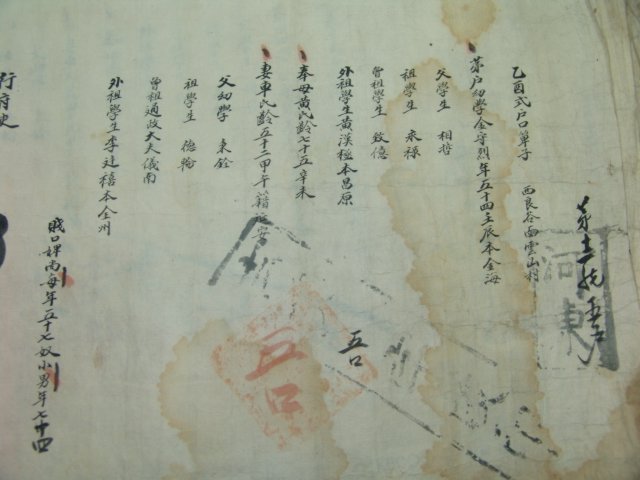 乙酉式戶口單子 西良谷面雲山村
第十一統五戶
第戶幼學金守烈年五十四壬辰本金海
父學生 相哲
祖學生 來祿
曾祖學生 致德
外祖學生黃漢極本昌原
奉母黃氏齡七十五辛未
妻車氏齡五十二甲午籍延安
父幼學 東銓
祖學生 德翰
曾祖通政大夫儀南
外祖學生李建禧本全州
賤口婢尚每年五十七奴小男年七十四
五口
五口
河東
行府使